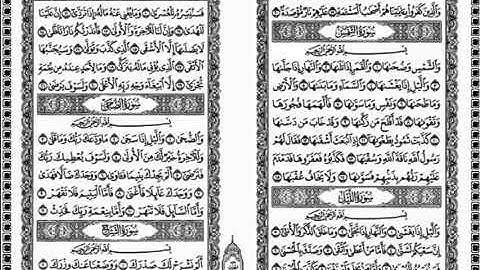 وَالَّذِينَ كَفَرُوا بِـَٔايَٰتِنَا هُمْ أَصْحَٰبُ الْمَشْـَٔمَةِ ۝ عَلَيْهِمْ نَارٌ مُّؤْصَدَةٌۢ ۝
سُورَةُ الشَّمْسِ
بِسْمِ اللَّهِ الرَّحْمَٰنِ الرَّحِيمِ
وَالشَّمْسِ وَضُحَىٰهَا ۝ وَالْقَمَرِ إِذَا تَلَىٰهَا ۝ وَالنَّهَارِ إِذَا جَلَّىٰهَا
۝ وَالَّيْلِ إِذَا يَغْشَىٰهَا ۝ وَالسَّمَآءِ وَمَا بَنَىٰهَا ۝ وَالْأَرْضِ
وَمَا طَحَىٰهَا ۝ وَنَفْسٍ وَمَا سَوَّىٰهَا ۝ فَأَلْهَمَهَا فُجُورَهَا
وَتَقْوَىٰهَا ۝ قَدْ أَفْلَحَ مَن زَكَّىٰهَا ۝ وَقَدْ خَابَ مَن دَسَّىٰهَا
۝ كَذَّبَتْ ثَمُودُ بِطَغْوَىٰهَآ ۝ إِذِ انۢبَعَثَ أَشْقَىٰهَا ۝ فَقَالَ لَهُمْ
رَسُولُ اللَّهِ نَاقَةَ اللَّهِ وَسُقْيَٰهَا ۝ فَكَذَّبُوهُ فَعَقَرُوهَا فَدَمْدَمَ
عَلَيْهِمْ رَبُّهُم بِذَنۢبِهِمْ فَسَوَّىٰهَا ۝ وَلَا يَخَافُ عُقْبَٰهَا ۝
سُورَةُ اللَّيْلِ
بِسْمِ اللَّهِ الرَّحْمَٰنِ الرَّحِيمِ
وَالَّيْلِ إِذَا يَغْشَىٰ ۝ وَالنَّهَارِ إِذَا تَجَلَّىٰ ۝ وَمَا خَلَقَ الذَّكَرَ وَالْأُنثَىٰٓ ۝
إِنَّ سَعْيَكُمْ لَشَتَّىٰ ۝ فَأَمَّا مَنْ أَعْطَىٰ وَاتَّقَىٰ ۝ وَصَدَّقَ بِالْحُسْنَىٰ
فَسَنُيَسِّرُهُۥ لِلْعُسْرَىٰ ۝ وَمَا يُغْنِي عَنْهُ مَالُهُۥٓ إِذَا تَرَدَّىٰٓ ۝ إِنَّ عَلَيْنَا
لَلْهُدَىٰ ۝ وَإِنَّ لَنَا لَلْـَٔاخِرَةَ وَالْأُولَىٰ ۝ فَأَنذَرْتُكُمْ نَارًا تَلَظَّىٰ ۝
لَا يَصْلَىٰهَآ إِلَّا الْأَشْقَى ۝ الَّذِي كَذَّبَ وَتَوَلَّىٰ ۝ وَسَيُجَنَّبُهَا
الْأَتْقَى ۝ الَّذِي يُؤْتِي مَالَهُۥ يَتَزَكَّىٰ ۝ وَمَا لِأَحَدٍ عِندَهُۥ مِن نِّعْمَةٍ
تُجْزَىٰٓ ۝ إِلَّا ابْتِغَآءَ وَجْهِ رَبِّهِ الْأَعْلَىٰ ۝ وَلَسَوْفَ يَرْضَىٰ ۝
سُورَةُ الضُّحَىٰ
بِسْمِ اللَّهِ الرَّحْمَٰنِ الرَّحِيمِ
وَالضُّحَىٰ ۝ وَالَّيْلِ إِذَا سَجَىٰ ۝ مَا وَدَّعَكَ رَبُّكَ وَمَا قَلَىٰ ۝
وَلَلْـَٔاخِرَةُ خَيْرٌ لَّكَ مِنَ الْأُولَىٰ ۝ وَلَسَوْفَ يُعْطِيكَ رَبُّكَ
فَتَرْضَىٰٓ ۝ أَلَمْ يَجِدْكَ يَتِيمًا فَـَٔاوَىٰ ۝ وَوَجَدَكَ ضَآلًّا فَهَدَىٰ
۝ وَوَجَدَكَ عَآئِلًا فَأَغْنَىٰ ۝ فَأَمَّا الْيَتِيمَ فَلَا تَقْهَرْ ۝
وَأَمَّا السَّآئِلَ فَلَا تَنْهَرْ ۝ وَأَمَّا بِنِعْمَةِ رَبِّكَ فَحَدِّثْ ۝
سُورَةُ الشَّرْحِ
بِسْمِ اللَّهِ الرَّحْمَٰنِ الرَّحِيمِ
أَلَمْ نَشْرَحْ لَكَ صَدْرَكَ ۝ وَوَضَعْنَا عَنكَ وِزْرَكَ ۝